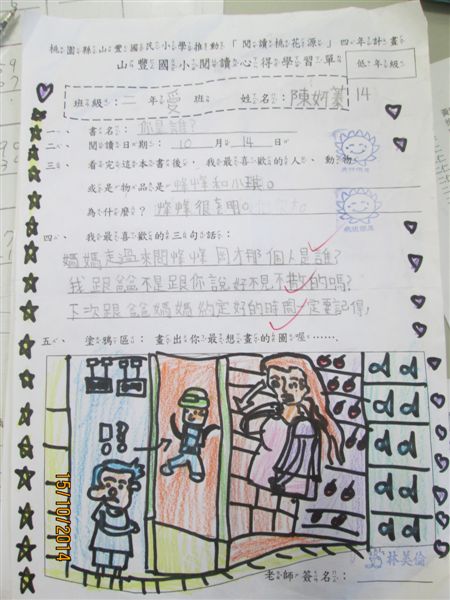 桃園縣山豐國民小學推動「閱讀桃花源」四年計畫
山豐國小閱讀心得學習單
低年級
班級：二年愛班 姓名：陳妍蓁 14
一、書名：你是誰？
二、閱讀日期：10月14日
三、看完這本書後，我最喜歡的人、動物
或是物品是 烽烽和小琪。
為什麼？ 烽烽很聰明
四、我最喜歡的三句話：
媽媽走過來問烽烽 剛才那個人是誰？
我跟爸爸不是跟你說好不見不散的嗎？
下次跟爸爸媽媽約定好的時間一定要記得，
五、塗鴉區：畫出你最想畫的圖喔……
老師簽名：
林美倫
15/10/2014